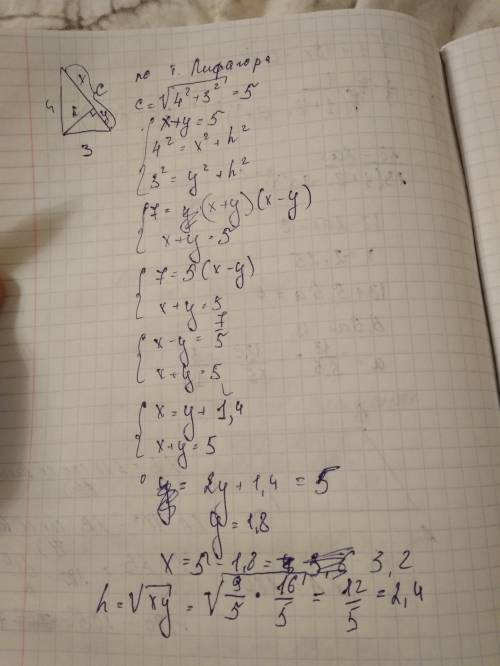 4
x
c
h
y
3
по т. Пифагора
c = √4² + 3² = 5
x+y = 5
4² = x² + h²
3² = y² + h²
7 = (x+y)(x-y)
x+y = 5
7 = 5(x-y)
x+y = 5
x-y = 7/5
x+y = 5
x = y + 1,4
x+y = 5
2y + 1,4 = 5
y = 1,8
x = 5 - 1,8 = 3,2
h = √xy = √9/5 · 16/5 = 12/5 = 2,4